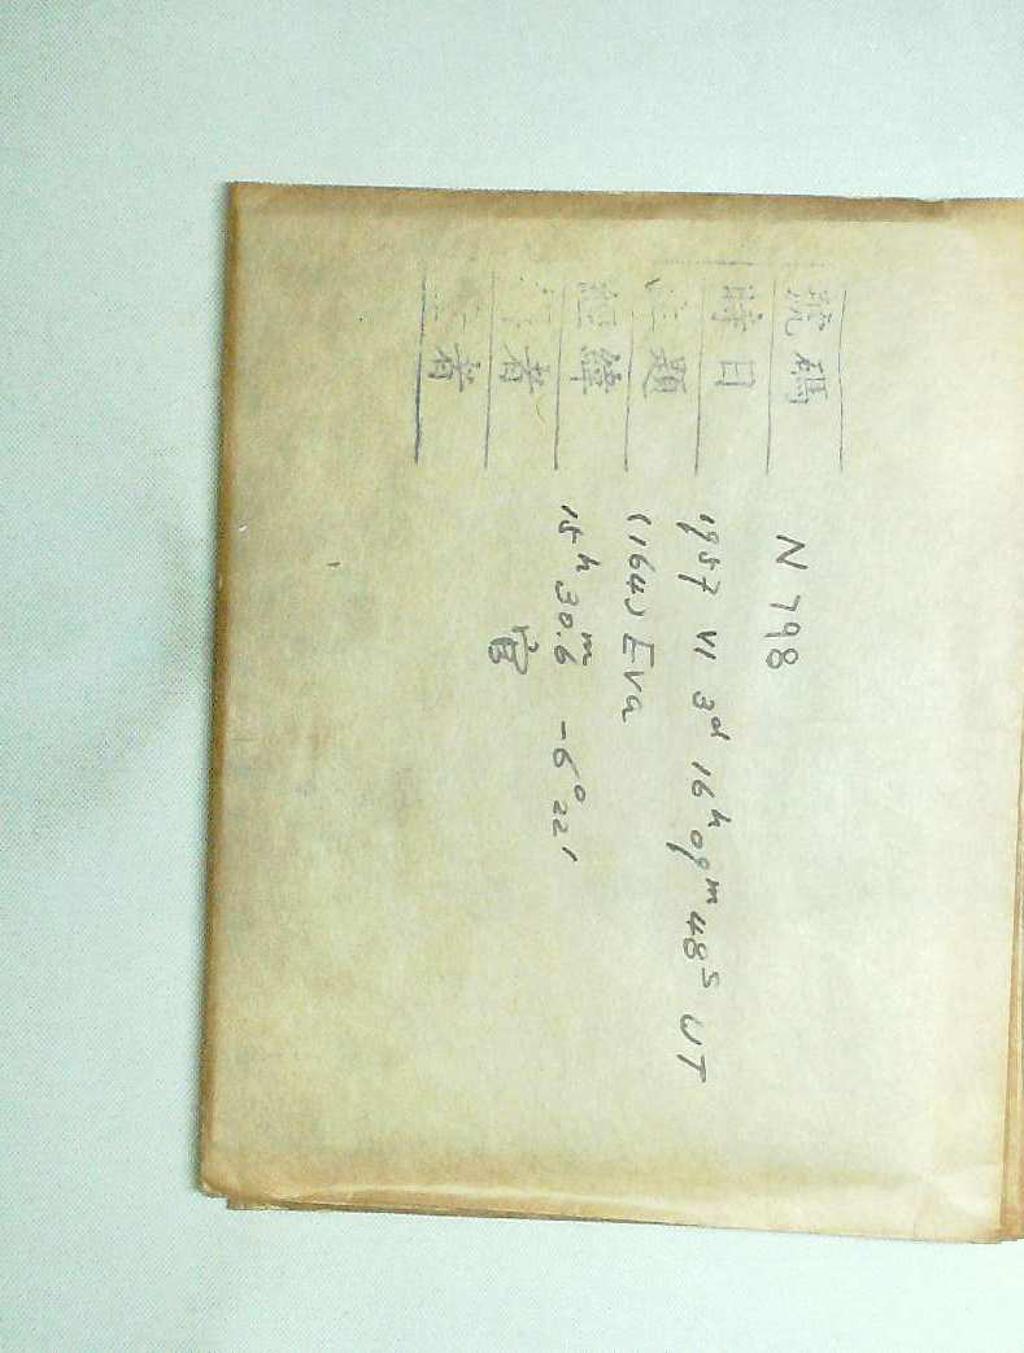 號碼 N 798
時日 1957 VI 3d 16h 09m 48s UT
主題 (164) Eva
經緯 15h 30.6m -6°22'
者
者